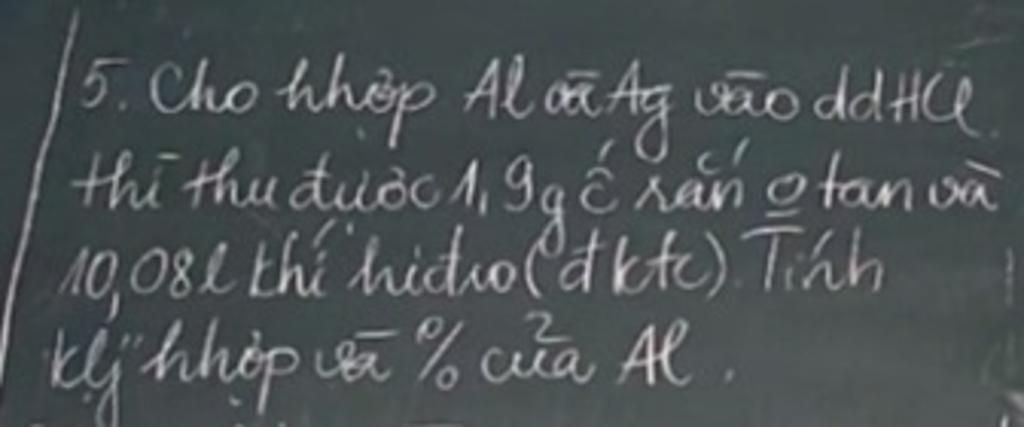 5. Cho hhợp Al và Ag vào dd HCl
thì thu được 1,9g ć rắn o tan và
10,08l khí hiđro (đktc). Tính
klg hhợp và % của Al.